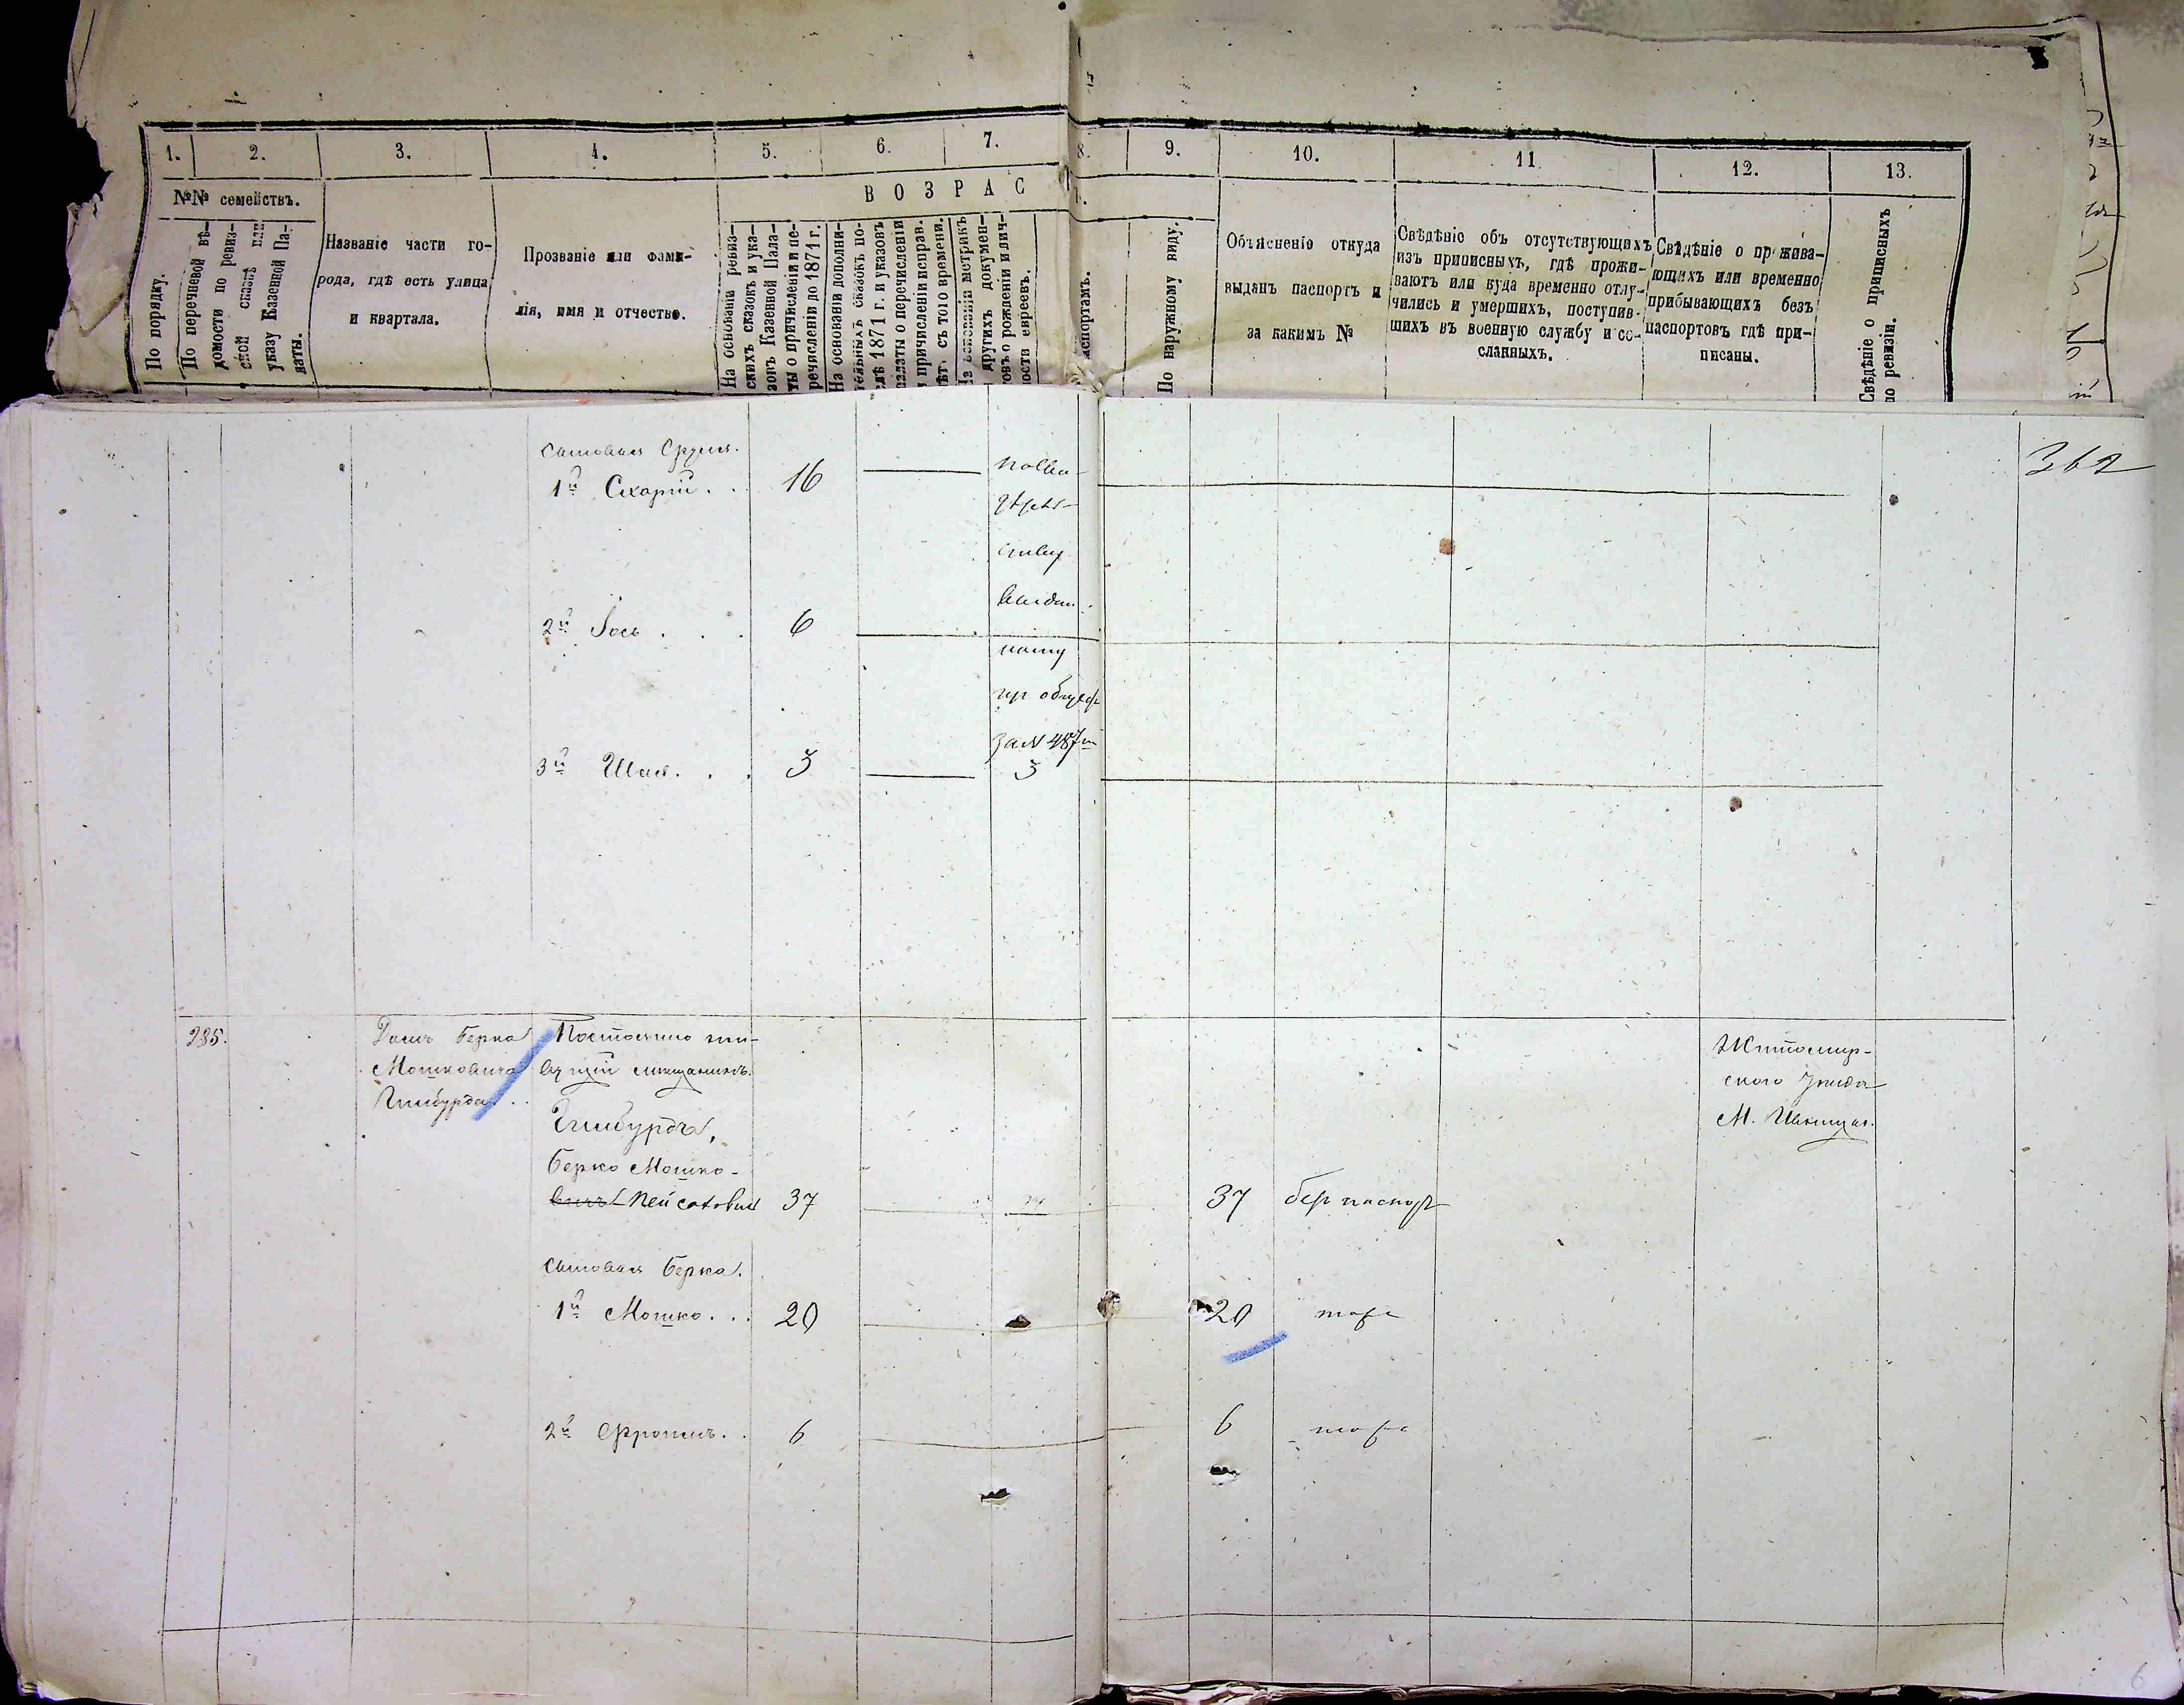 1.
2.
3.
4.
5.
6.
7.
8.
9.
10.
11
12.
13.
№№ семействъ.
По порядку.
По перечневой вѣ-
домости по ревиз-
ской сказкѣ или
указу Казенной Па-
латы.
Названіе части го-
рода, гдѣ есть улица
и квартала.
Прозваніе или фами-
лія, имя и отчество.
ВОЗРАС
На основаніи ревиз-
скихъ сказокъ и ука-
зовъ Казенной Пала-
ты о причисленіи и пе-
речисленіи до 1871 г.
На основаніи дополни-
тельныхъ сказокъ по-
слѣ 1871 г. и указовъ
палаты о перечисленіи
и причисленіи исправ.
лѣт. съ того времени.
На основаніи метрикъ
другихъ докумен-
товъ о рожденіи и лич-
ности евреевъ.
аспортамъ.
По наружному виду.
Объясненіе откуда
выданъ паспортъ и
за какимъ №
Свѣдѣніе объ отсутствующихъ
изъ приписныхъ, гдѣ прожи-
ваютъ или куда временно отлу-
чились и умершихъ, поступив-
шихъ въ военную службу и со-
сланныхъ.
Свѣдѣніе о прожива-
ющихъ или временно
прибывающихъ безъ
паспортовъ гдѣ при-
писаны.
Свѣдѣніе о приписныхъ
по ревизіи.
362
Сыновья Сруля.
1й Схарій . . 16
2й Іось . . . 6
выдан.
3й Шая . . . 3
за № 487
3
285.
Домъ Берка
Мошковича
Гинбурда . .
Постоянно жи-
вущій мещанинъ.
Гинбурдъ,
Берко Мошко-
вичъ Пейсахович 37
37 без паспорт
Житомир-
ского уезда
М. Ивница.
Сыновья Берка.
1й Мошко . . . 20
20 тоже
2й Фроимъ . . 6
6 тоже
6